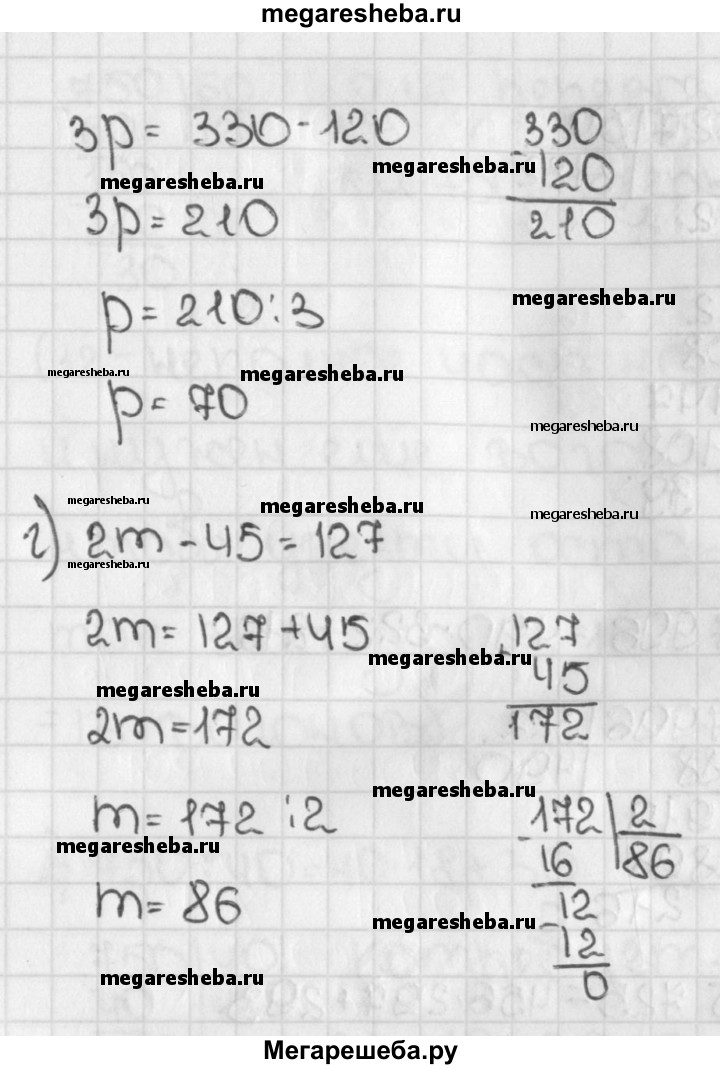 megaresheba.ru
3p = 330 - 120
330
- 120
210
megaresheba.ru
megaresheba.ru
3p = 210
megaresheba.ru
p = 210 : 3
megaresheba.ru
megaresheba.ru
p = 70
megaresheba.ru
megaresheba.ru
megaresheba.ru
megaresheba.ru
г) 2m - 45 = 127
megaresheba.ru
2m = 127 + 45
127
+ 45
172
megaresheba.ru
megaresheba.ru
2m = 172
megaresheba.ru
m = 172 : 2
172 | 2
- 16 | 86
12
- 12
0
megaresheba.ru
m = 86
megaresheba.ru
megaresheba.ru
Мегарешеба.ру